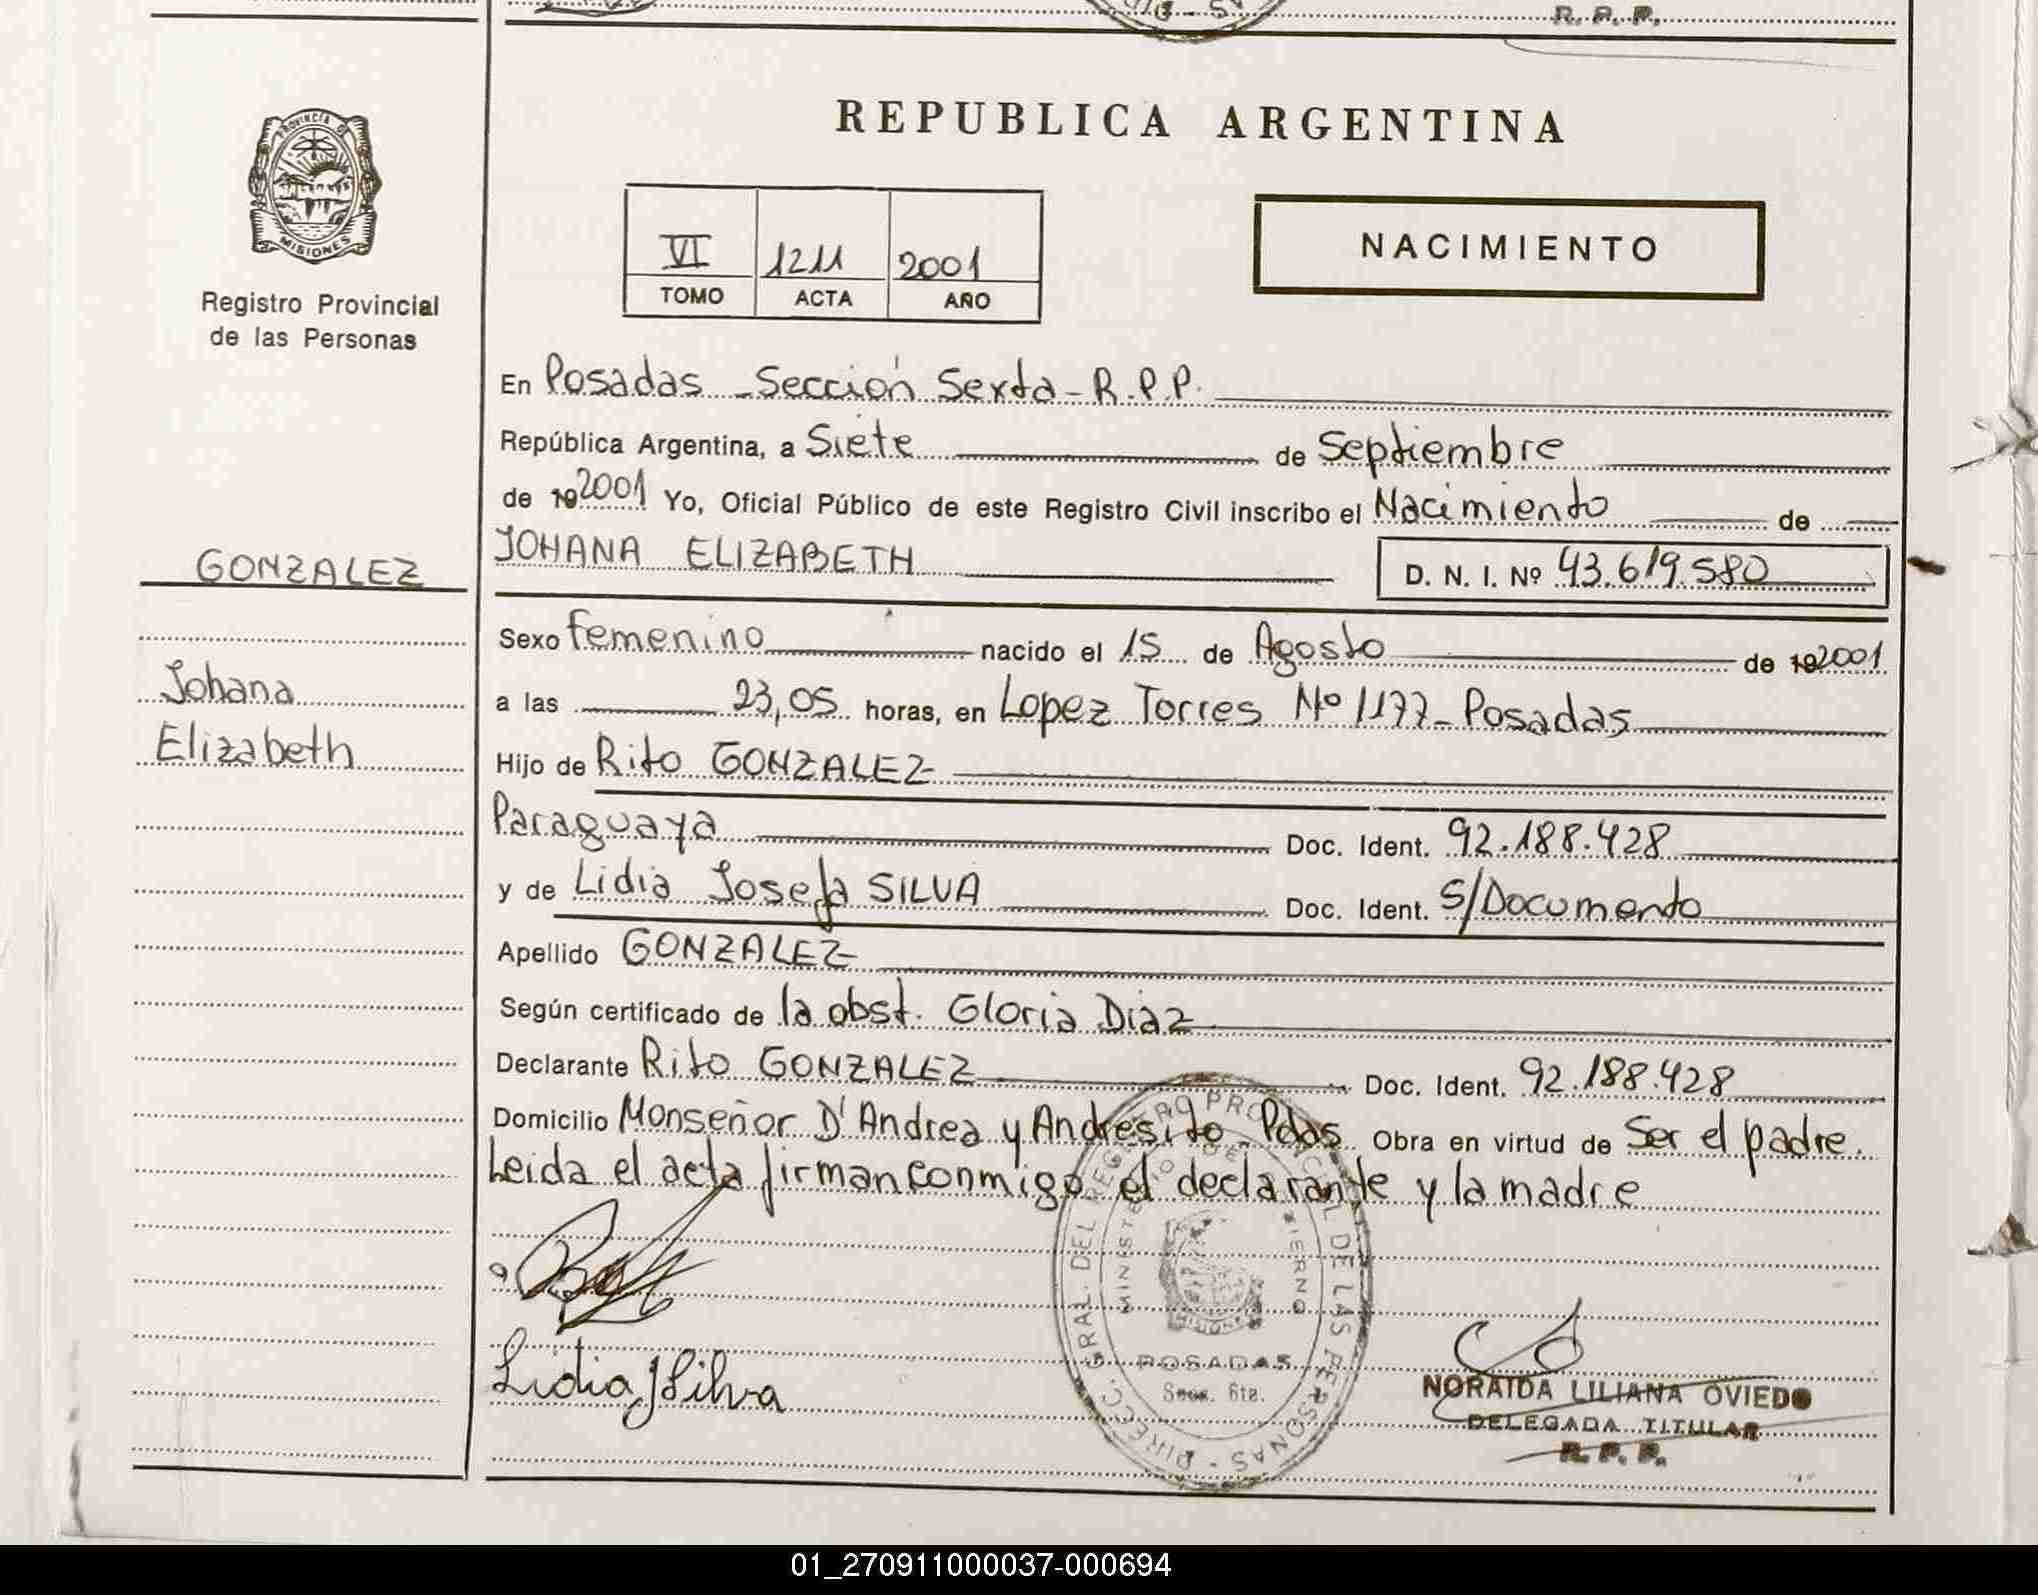 R. P. P.
REPUBLICA ARGENTINA
PROVINCIA DE
MISIONES
Registro Provincial
de las Personas
VI 1211 2001
TOMO ACTA AÑO
NACIMIENTO
En Posadas - Sección Sexta - R.P.P.
República Argentina, a Siete de Septiembre
de 192001 Yo, Oficial Público de este Registro Civil inscribo el Nacimiento de
GONZALEZ
JOHANA ELIZABETH
D. N. I. Nº 43.619.580
Sexo femenino nacido el 15 de Agosto de 192001
Johana
a las 23,05 horas, en Lopez Torres Nº 1177 - Posadas
Elizabeth
Hijo de Rito GONZALEZ
Paraguaya Doc. Ident. 92.188.428
y de Lidia Josefa SILVA Doc. Ident. S/Documento
Apellido GONZALEZ
Según certificado de la obst. Gloria Diaz
Declarante Rito GONZALEZ Doc. Ident. 92.188.428
Domicilio Monseñor D'Andrea y Andresito - Pdas Obra en virtud de Ser el padre.
Leida el acta firman conmigo el declarante y la madre
DIREC. GRAL. DEL REGISTRO PROVINCIAL DE LAS PERSONAS
MINISTERIO DE GOBIERNO
MISIONES
POSADAS
Secc. 6ta.
Lidia J Silva
NORAIDA LILIANA OVIEDO
DELEGADA TITULAR
R. P. P.
01_270911000037-000694